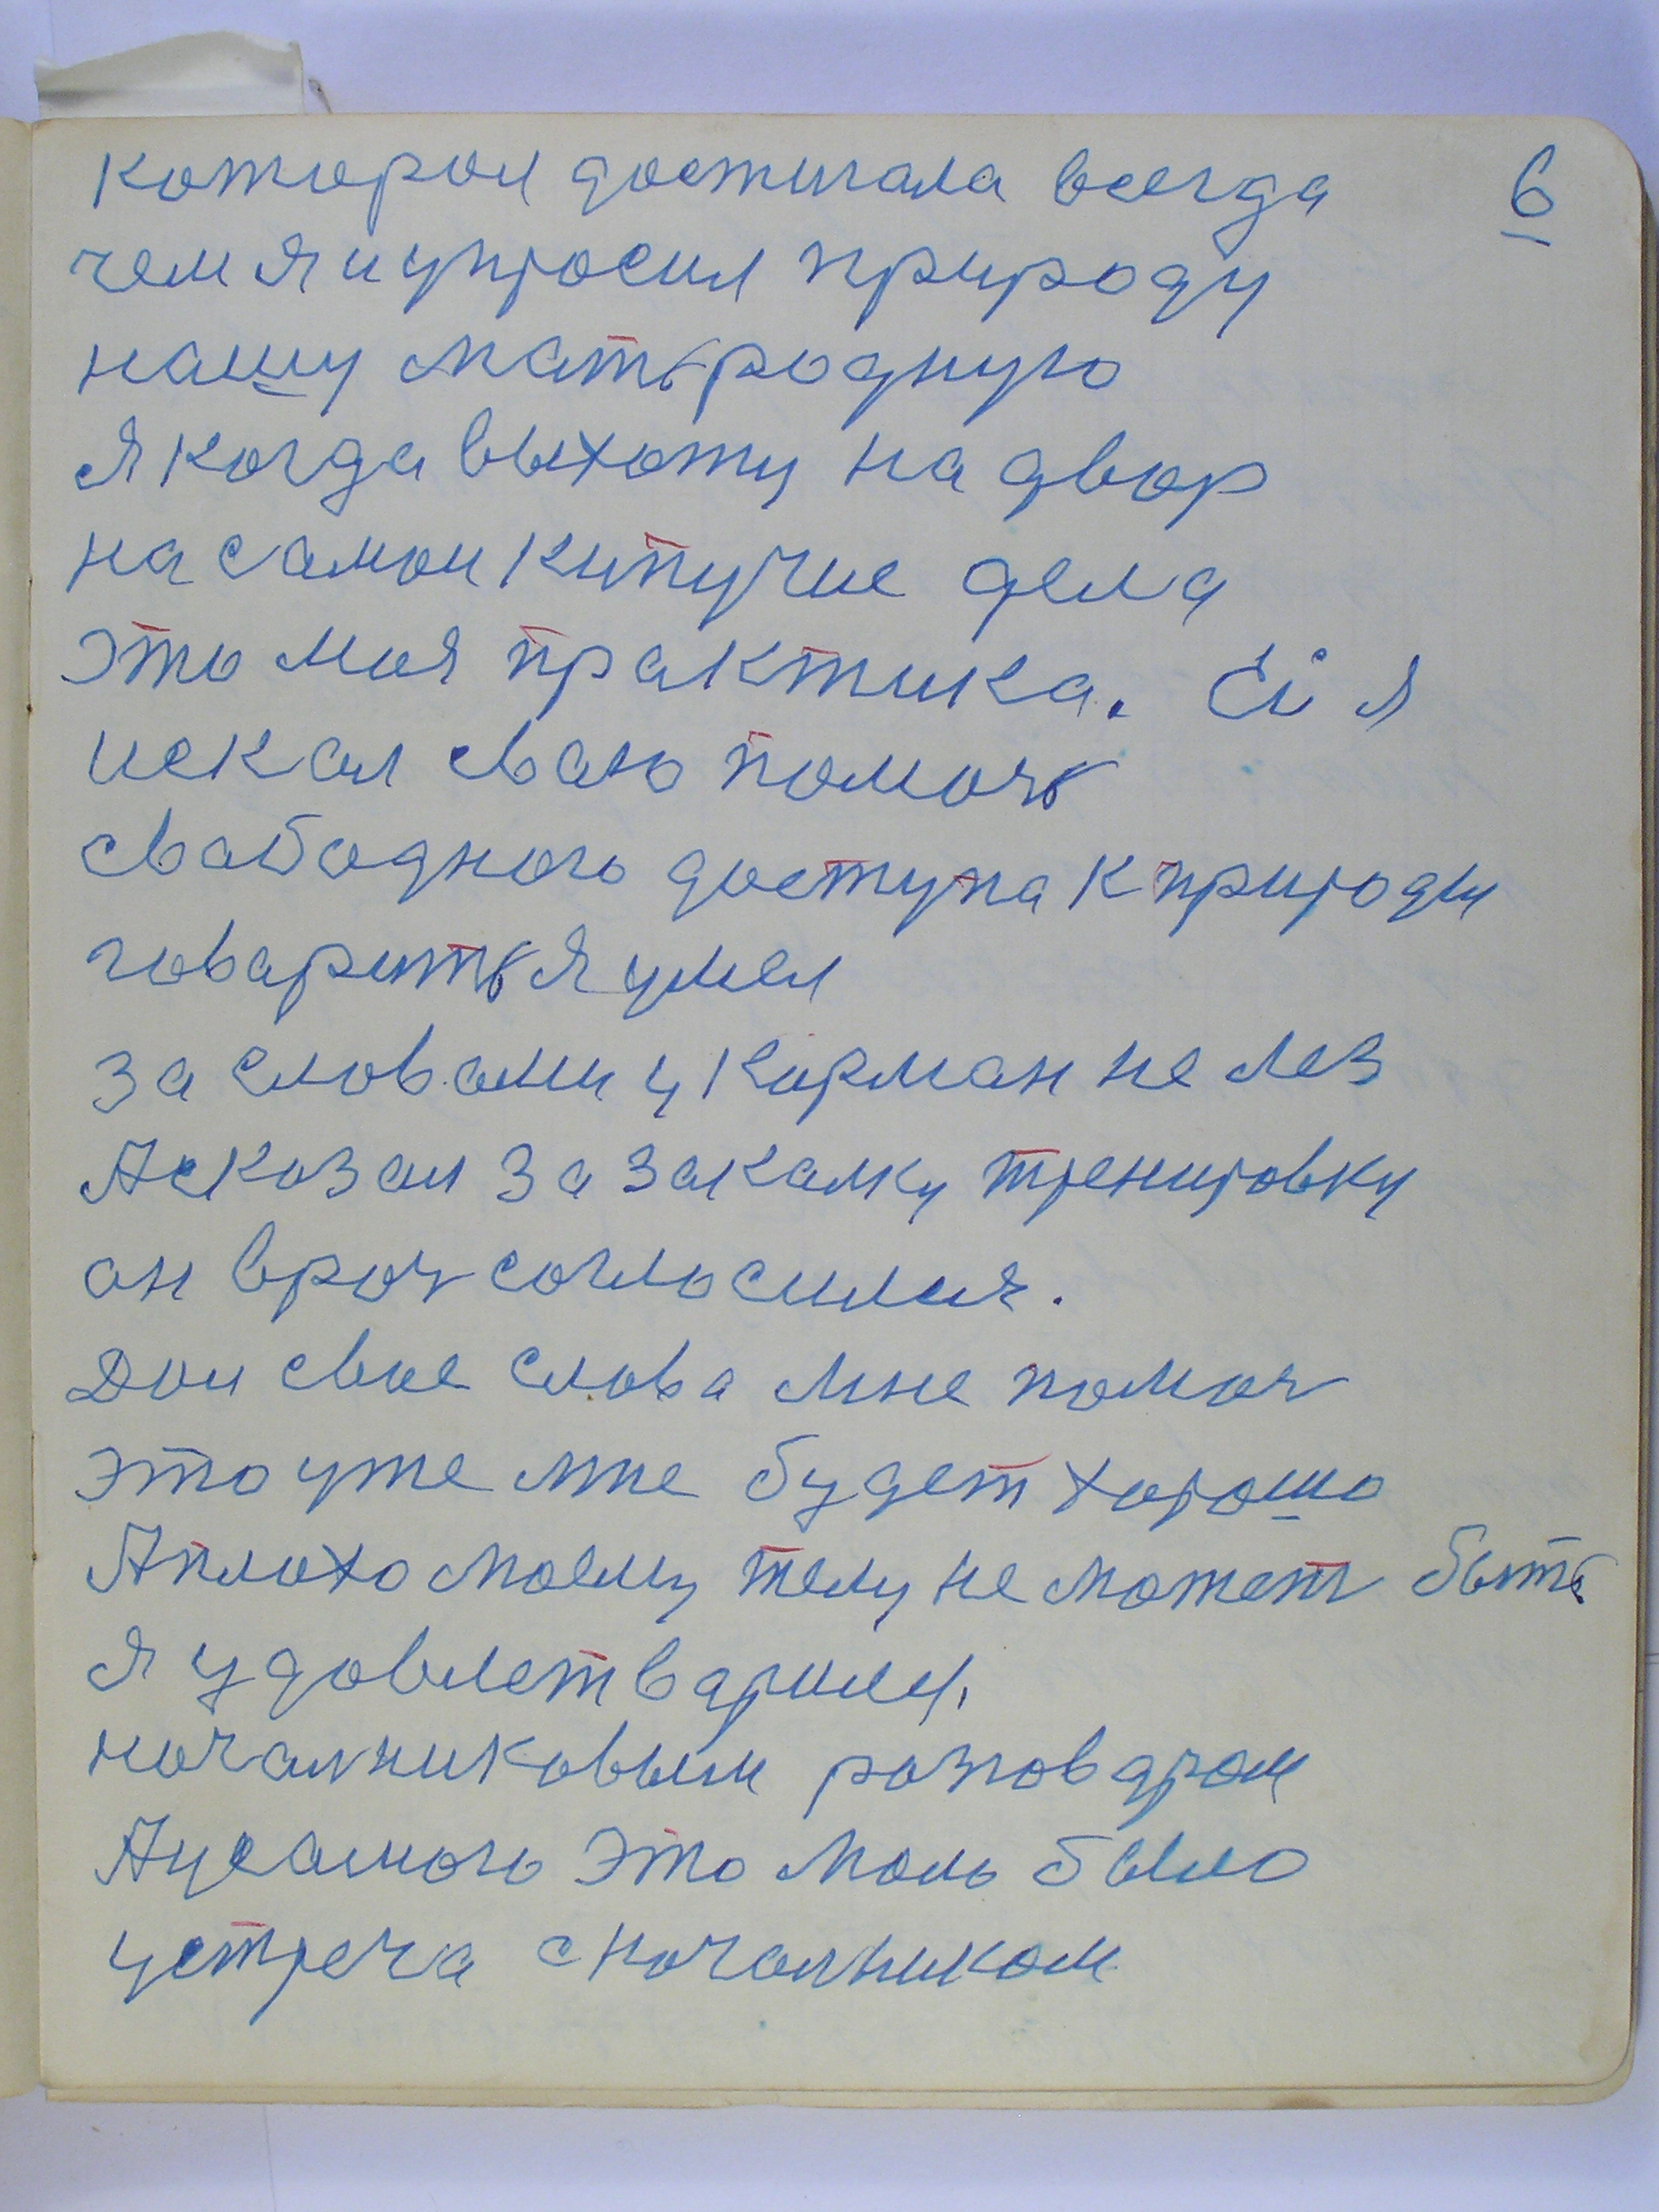 которая достигала всегда 6
чем я и упросил природу
нашу мать родную
я когда выхожу на двор
на самои кипучие дела
это моя практика. Ей я
искал сваю помочь
свабодного доступа к природи
говарить я умел
за словами у карман не лез
А сказал за закалку тренировку
он врач согласился.
Дои свое слова мне помоч
это уже мне будет хорошо
А плохо моему телу не может быть
я удовлетварилсч
началниковым разговаром
А у самого это маль было
устреча с началником